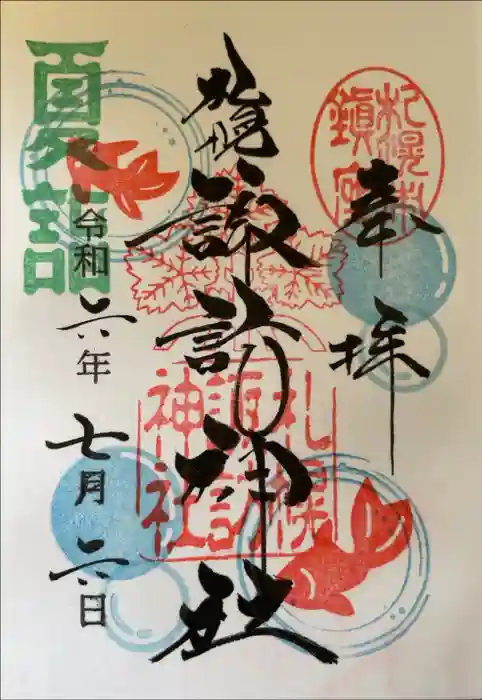 奉拝
札幌村
鎮座
札幌
諏訪神社
札幌
諏訪
神社
夏詣
令和六年
七月六日